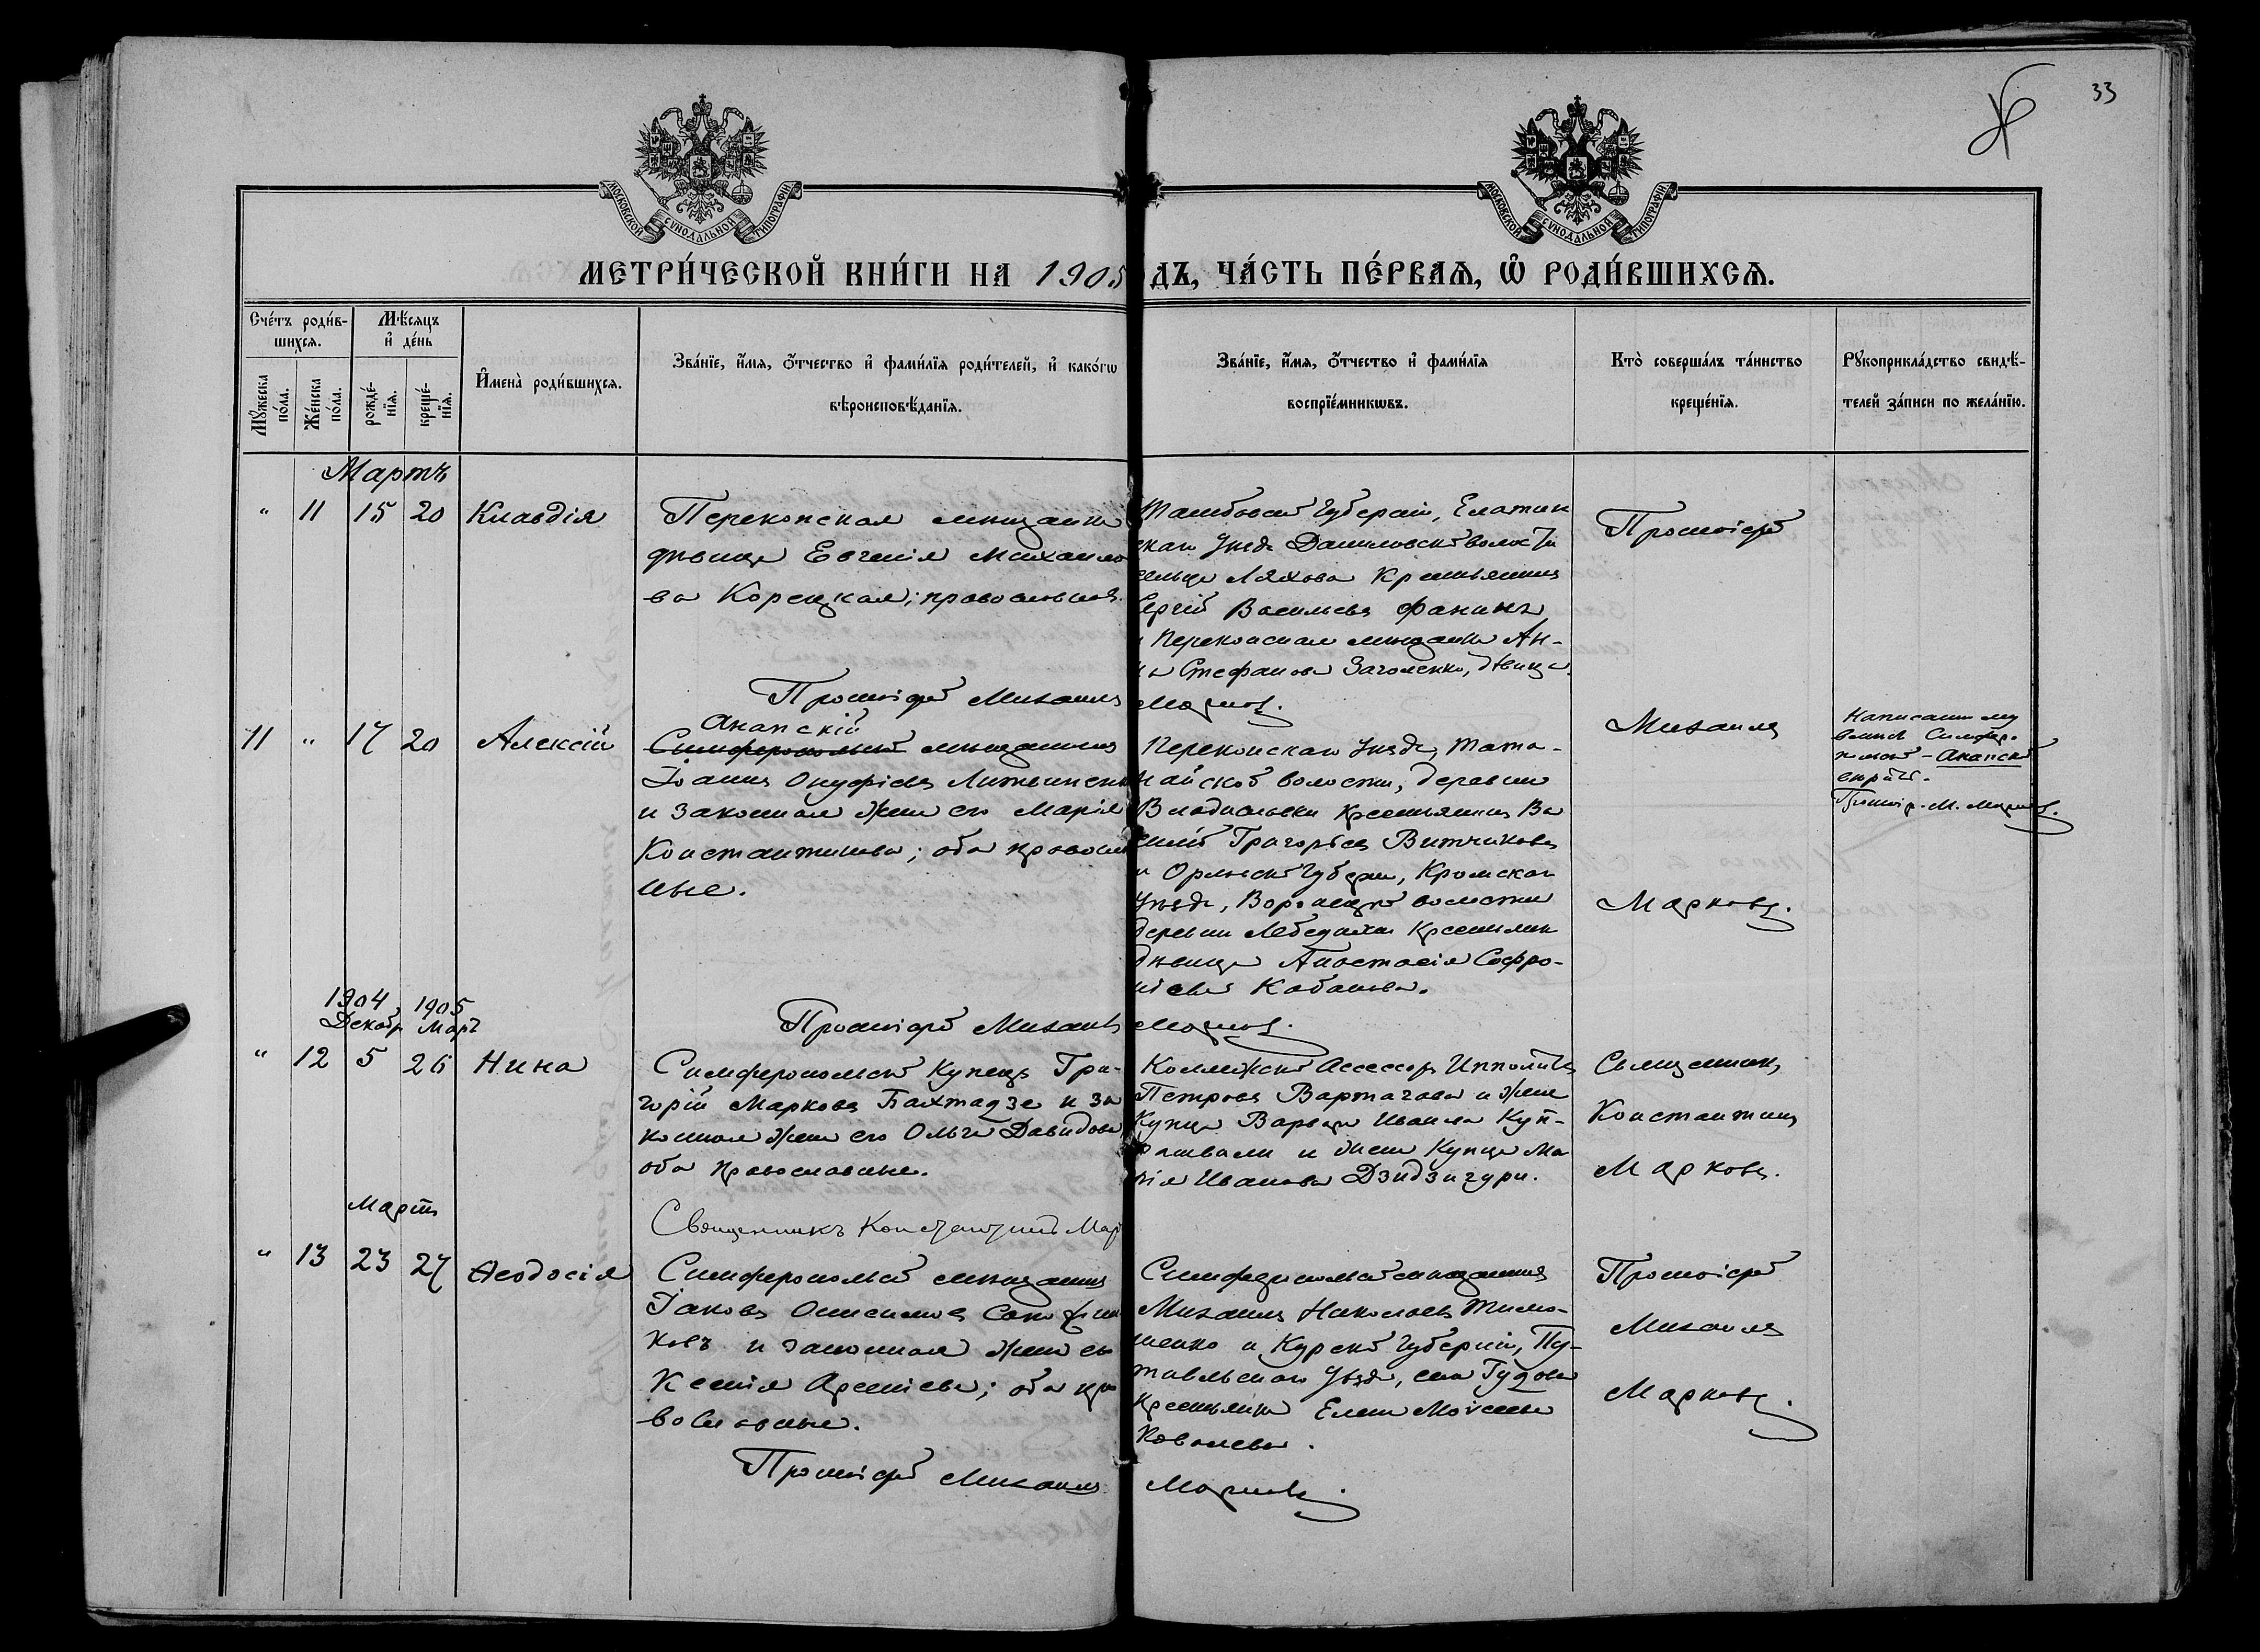 33
МОСКОВСКОЙ СѴНОДАЛЬНОЙ ТИПОГРАФІИ
МОСКОВСКОЙ СѴНОДАЛЬНОЙ ТИПОГРАФІИ
МЕТРИ́ЧЕСКОЙ КНИ́ГИ НА 1905
ДЪ, ЧА́СТЬ ПЕ́РВАѦ, Ѡ҆ РОДИ́ВШИХСѦ.
Сче́тъ роди́в-
шихсѧ.
Мꙋ́жеска
по́ла.
Же́нска
по́ла.
Мѣ́сѧцъ
и҆ де́нь
рожде́-
нїѧ.
креще́-
нїѧ.
И҆мена̀ роди́вшихсѧ.
Зва́нїе, и҆́мѧ, ѻ҆́тчество и҆ фами́лїѧ роди́телей, и҆ како́гѡ
вѣроисповѣ́данїѧ.
Зва́нїе, и҆́мѧ, ѻ҆́тчество и҆ фами́лїѧ
воспрїе́мникѡвъ.
Кто̀ соверша́лъ та́инство
креще́нїѧ.
Рꙋкоприкла́дство свидѣ́-
телей за́писи по жела́нїю.
Мартъ
" 11 15 20 Клавдія
Перекопская мѣщанка
дѣвица Евгенія Михаило
ва Корецкая; православная.
Тамбовской Губерніи, Елатом
скаго уѣзда Даниловской волости
сельца Ляхова Крестьянинъ
Сергій Васильевъ Фанинъ
и Перекопская мѣщанка Ан-
на Стефанова Заголенко, дѣвица.
Протоіерей
Протоіерей Михаилъ Марковъ.
11 " 17 20 Алексій
Анапскій
Симферопольскій мѣщанинъ
Іоаннъ Онуфріевъ Литвиненко
и законная жена его Марія
Константинова; оба православ
ные.
Перекопскаго уѣзда, Тата-
найской волости, деревни
Владиславки Крестьянинъ Ва
силій Григорьевъ Витчиковъ
и Орловской Губерніи, Кромскаго
уѣзда, Воронецкой волости
деревни Лебедихи Крестьянка
дѣвица Анастасія Софро-
ніева Кабанова.
Михаилъ
Марковъ.
Написанному
вмѣсто Симфер.
польскій - Анапскій
вѣрить.
Протоіер. М. Марковъ.
Протоіерей Михаилъ Марковъ.
1904 1905
Декабр Март
" 12 5 26 Нина
Симферопольскій Купецъ Гри-
горій Марковъ Бахтадзе и за
конная жена его Ольга Давидова
оба православные.
Коллежскій Ассессоръ Ипполитъ
Петровъ Вартагава и жена
Купца Варвара Иванова Куп-
рашвали и жена Купца Ма
рія Иванова Дзидзигури.
Священникъ
Константинъ
Марковъ.
Священникъ Константинъ Мар
Мартъ
" 13 23 27 Ѳеодосія
Симферопольскій мѣщанинъ
Іаковъ Онисимовъ
ковъ и законная жена его
Ксенія Арсеніева; оба пра
вославные.
Симферопольскій мѣщанинъ
Михаилъ Николаевъ Тимо-
шенко и Курской Губерніи, Пу-
тивльскаго уѣзда, села Гудова
крестьянка Елена Моисеева
Ковалева.
Протоіерей
Михаилъ
Марковъ.
Протоіерей Михаилъ Марковъ.